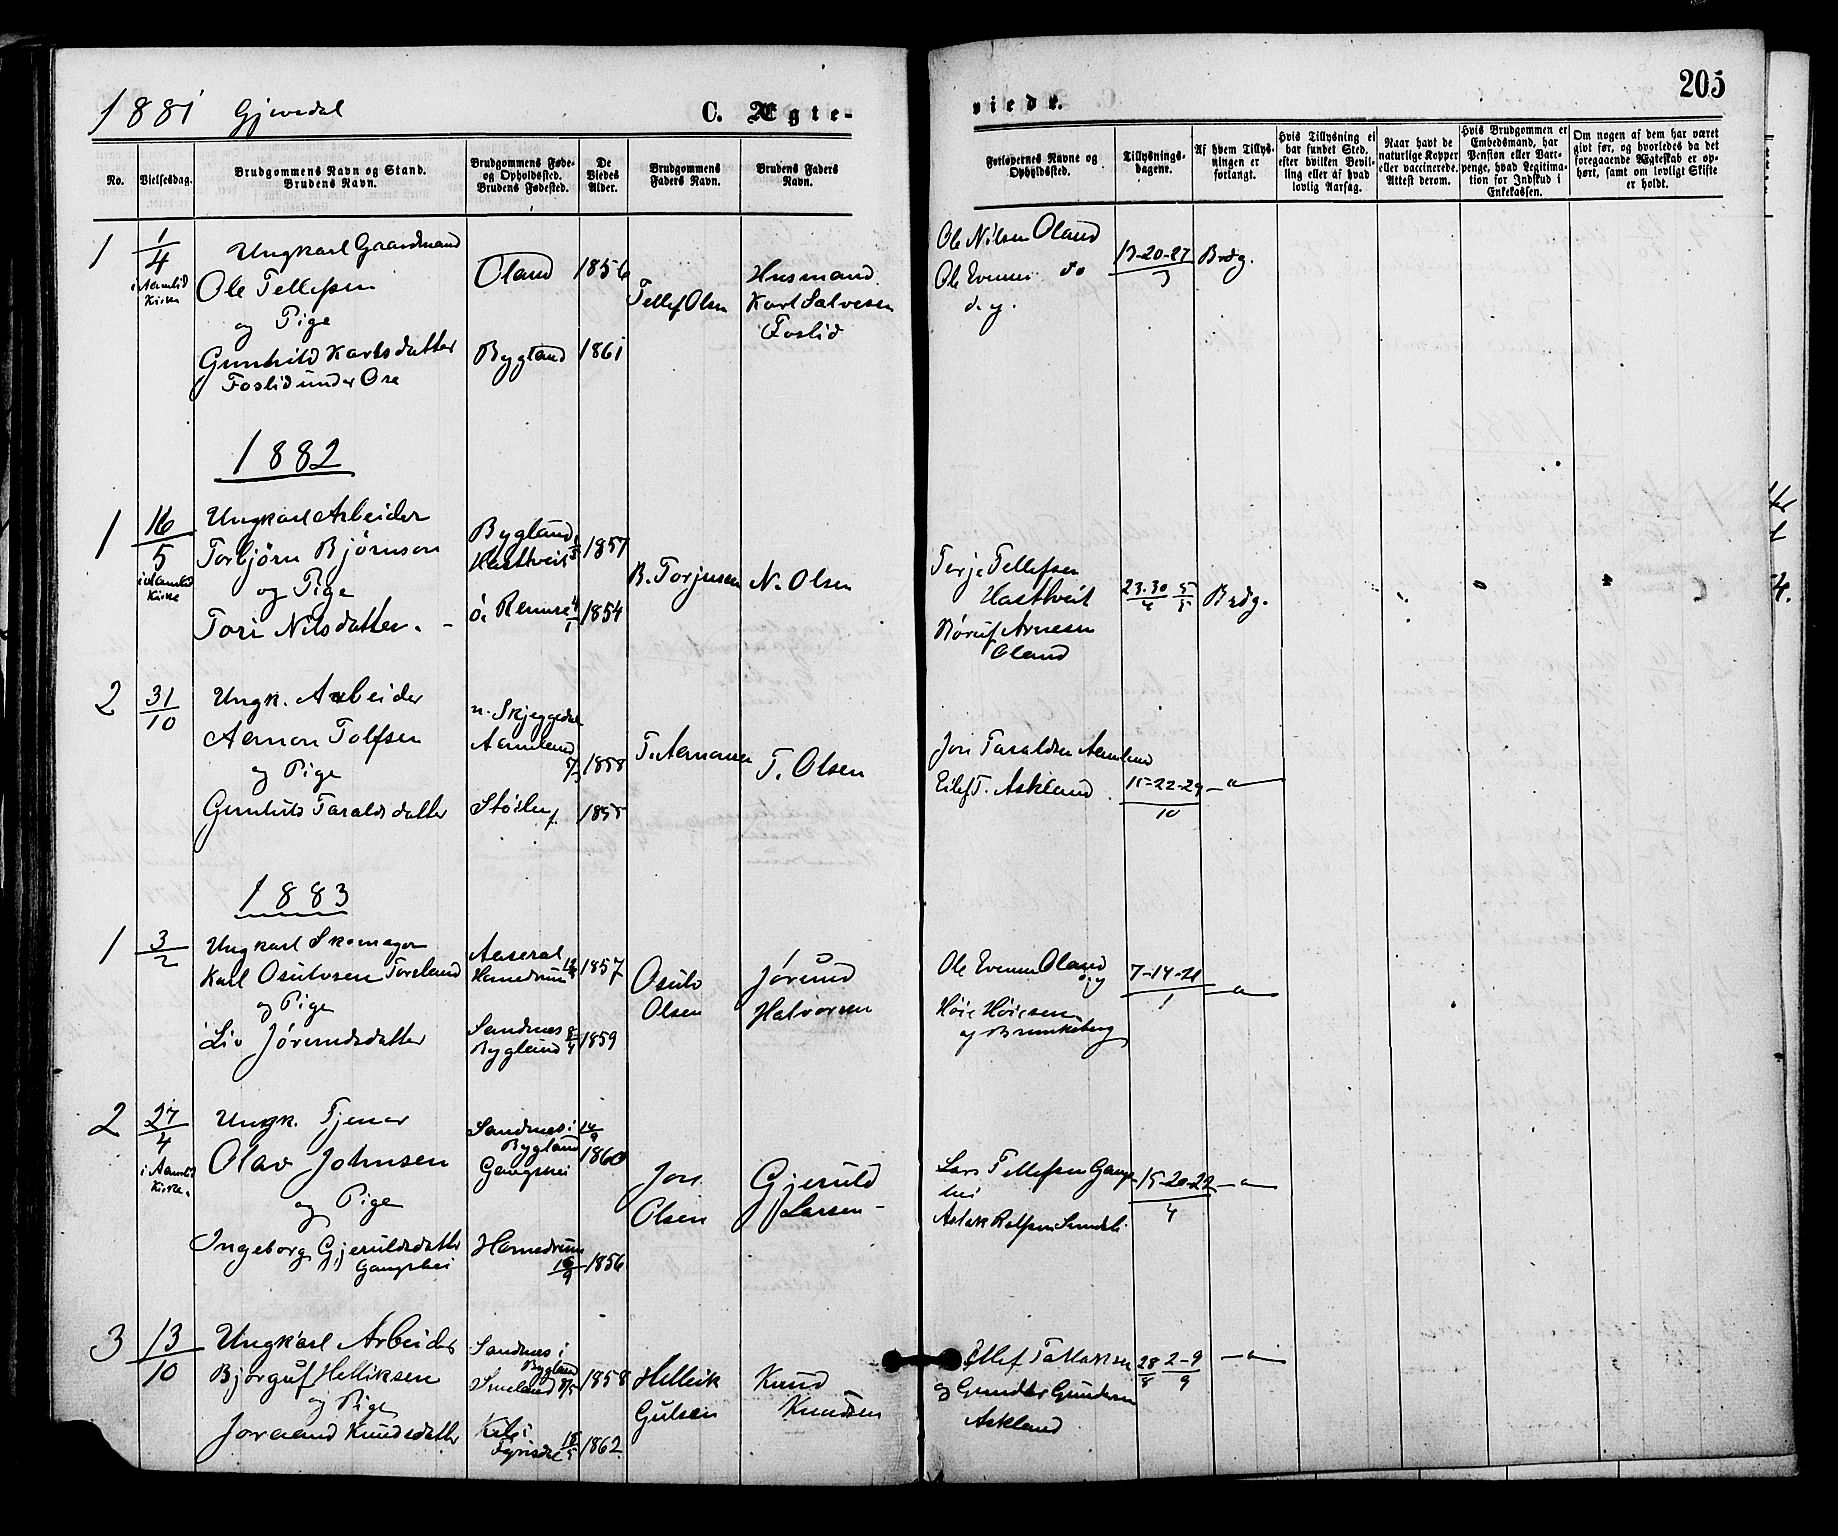 205
1881 Gjevedal
C. Ægte-
viede.
No.
Vielsesdag.
Brudgommens Navn og Stand.
Brudens Navn.
Brudgommens Føde-
og Opholdssted.
Brudens Fødested.
De
Viedes
Alder.
Brudgommens
Faders Navn.
Brudens Faders
Navn.
Forlovernes Navne og
Opholdssted.
Tillysnings-
dagene.
Af hvem Tillys-
ningen er
forlangt.
Hvis Tillysning ei
har fundet Sted,
efter hvilken Bevil-
ling eller af hvad
lovlig Aarsag.
Naar havt de
naturlige Kopper
eller vaccinerede.
Attest derom.
Hvis Brudgommen er
Embedsmand, har
Pension eller Vart-
penge, hvad Legitima-
tion for Indskud i
Enkekassen.
Om nogen af dem har været
givt før, og hvorledes da det
foregaaende Ægteskab er op-
hørt, samt om lovligt Skifte
er holdt.
1
1/4
i Aamlid
Kirke
Ungkarl Gaardmand
Ole Tellefsen
og Pige
Gunhild Karlsdatter
Foslid under Ose
Oland 1856
Bygland 1861
Tellef Olsen
Husmand
Karl Salvesen
Foslid
Ole Nilsen Oland
Ole Evensen do
d. y.
13-20-27/3
Brdg.
1882
1
16/5
i Aamlid
Kirke
Ungkarl Arbeider
Torbjörn Bjørnson
og Pige
Tori Nilsdatter.
Bygland
Hasthveit 1857
ö. Ramse 4/1 1854
B. Torjusen
N. Olsen
Terje Tellefsen
Hasthveit
Børuf Arnesen
Oland
23.30/4 5/5
Brdg.
2
31/10
Ungk. Arbeider
Aamon Tolfsen
og Pige
Gunhild Taraldsdatter
n. Skjeggedal
Aamland
1858
Støilen 1855
T. Aamonsen
T. Olsen
Jon Taraldsen Aamland
Eilef T. Askland
15-22-29/10
—"—
1883
1
3/2
Ungkarl Skomager
Karl Osulvsen Forsland
og Pige
Liv Jørundsdatter
Aaseral
Hamedrum 1857
Sandnæs
Bygland 8/4 1859
Osulv
Olsen
Jørund
Halvorsen
Ole Evensen Oland
og
Høie Høiesen
Brunkeberg
7-14-21/1
—"—
2
27/4
i Aamlid
Kirke.
Ungk. Tjener
Olav Johnsen
og Pige
Ingeborg Gjeruldsdatter
Gangshei
Sandnes i
Bygland
Gangshei
14/9
1860
Hamedrum
16/9 1856
Jon
Olsen
Gjeruld
Larsen
Lars Tellefsen Gangs
hei
Aslak Rolfsen
15-20-22/4
—"—
3
13/10
Ungkarl Arbeider
Bjørguf Helliksen
og Pige
Joraand Knudsdatter
Sandnes i
Bygland
Smeland 1858
Kile i
Fyrisdal 1862
Hellik
Gulsen
Knud
Knudsen
Ellef
og Gunder Gundersen
Askland
28/8 2-9/9
—"—